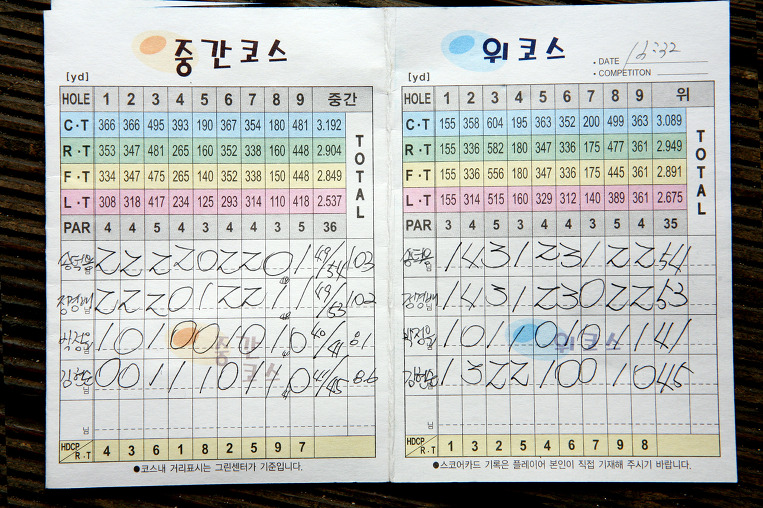 중간코스
[yd]
HOLE 1 2 3 4 5 6 7 8 9 중간
C·T 366 366 495 393 190 367 354 180 481 3.192
R·T 353 347 481 265 160 352 338 160 448 2.904
F·T 334 347 475 265 140 352 338 150 448 2.849
L·T 308 318 417 234 125 293 314 110 418 2.537
TOTAL
PAR 4 4 5 4 3 4 4 3 5 36
2 2 2 2 0 2 2 0 1 49/54 103
2 2 2 0 1 2 2 1 1 49/53 102
1 0 1 0 0 1 0 1 0 40/41 81
김현순 0 0 1 1 1 0 1 1 0 41/45 86
님
HDCP R·T 4 3 6 1 8 2 9 7
●코스내 거리표시는 그린센터가 기준입니다.
위코스
[yd]
• DATE 13:32
• COMPETITON
HOLE 1 2 3 4 5 6 7 8 9 위
C·T 155 358 604 195 363 352 200 499 363 3.089
R·T 155 336 582 180 347 336 175 477 361 2.949
F·T 155 336 556 180 347 336 175 445 361 2.891
L·T 155 314 515 160 329 312 140 389 361 2.675
TOTAL
PAR 3 4 5 3 4 4 3 5 4 35
1 4 3 1 2 3 1 2 2 54
1 4 3 1 2 3 0 2 2 53
박정율 1 0 1 1 0 1 0 1 1 41
김현순 1 3 2 2 1 0 0 1 0 45
님
HDCP R·T 1 3 2 4 5 6 7 9 8
●스코어카드 기록은 플레이어 본인이 직접 기재해 주시기 바랍니다.